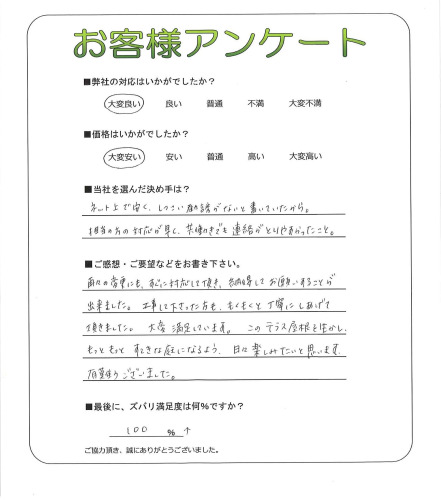 お客様アンケート
■弊社の対応はいかがでしたか？
大変良い 良い 普通 不満 大変不満
■価格はいかがでしたか？
大変安い 安い 普通 高い 大変高い
■当社を選んだ決め手は？
ネット上で安く、しつこい勧誘がないと書いていたから。
担当の方の対応が早く、共働きでも連絡がとりやすかったこと。
■ご感想・ご要望などをお書き下さい。
対応して頂き、納得してお願いすることが
出来ました。工事して下さった方も、もくもくと丁寧にしあげて
頂きました。大変満足しています。このテラス屋根を生かし、
もっともっとすてきな庭になるよう、日々楽しみたいと思います。
ございました。
■最後に、ズバリ満足度は何%ですか？
100 %
ご協力頂き、誠にありがとうございました。